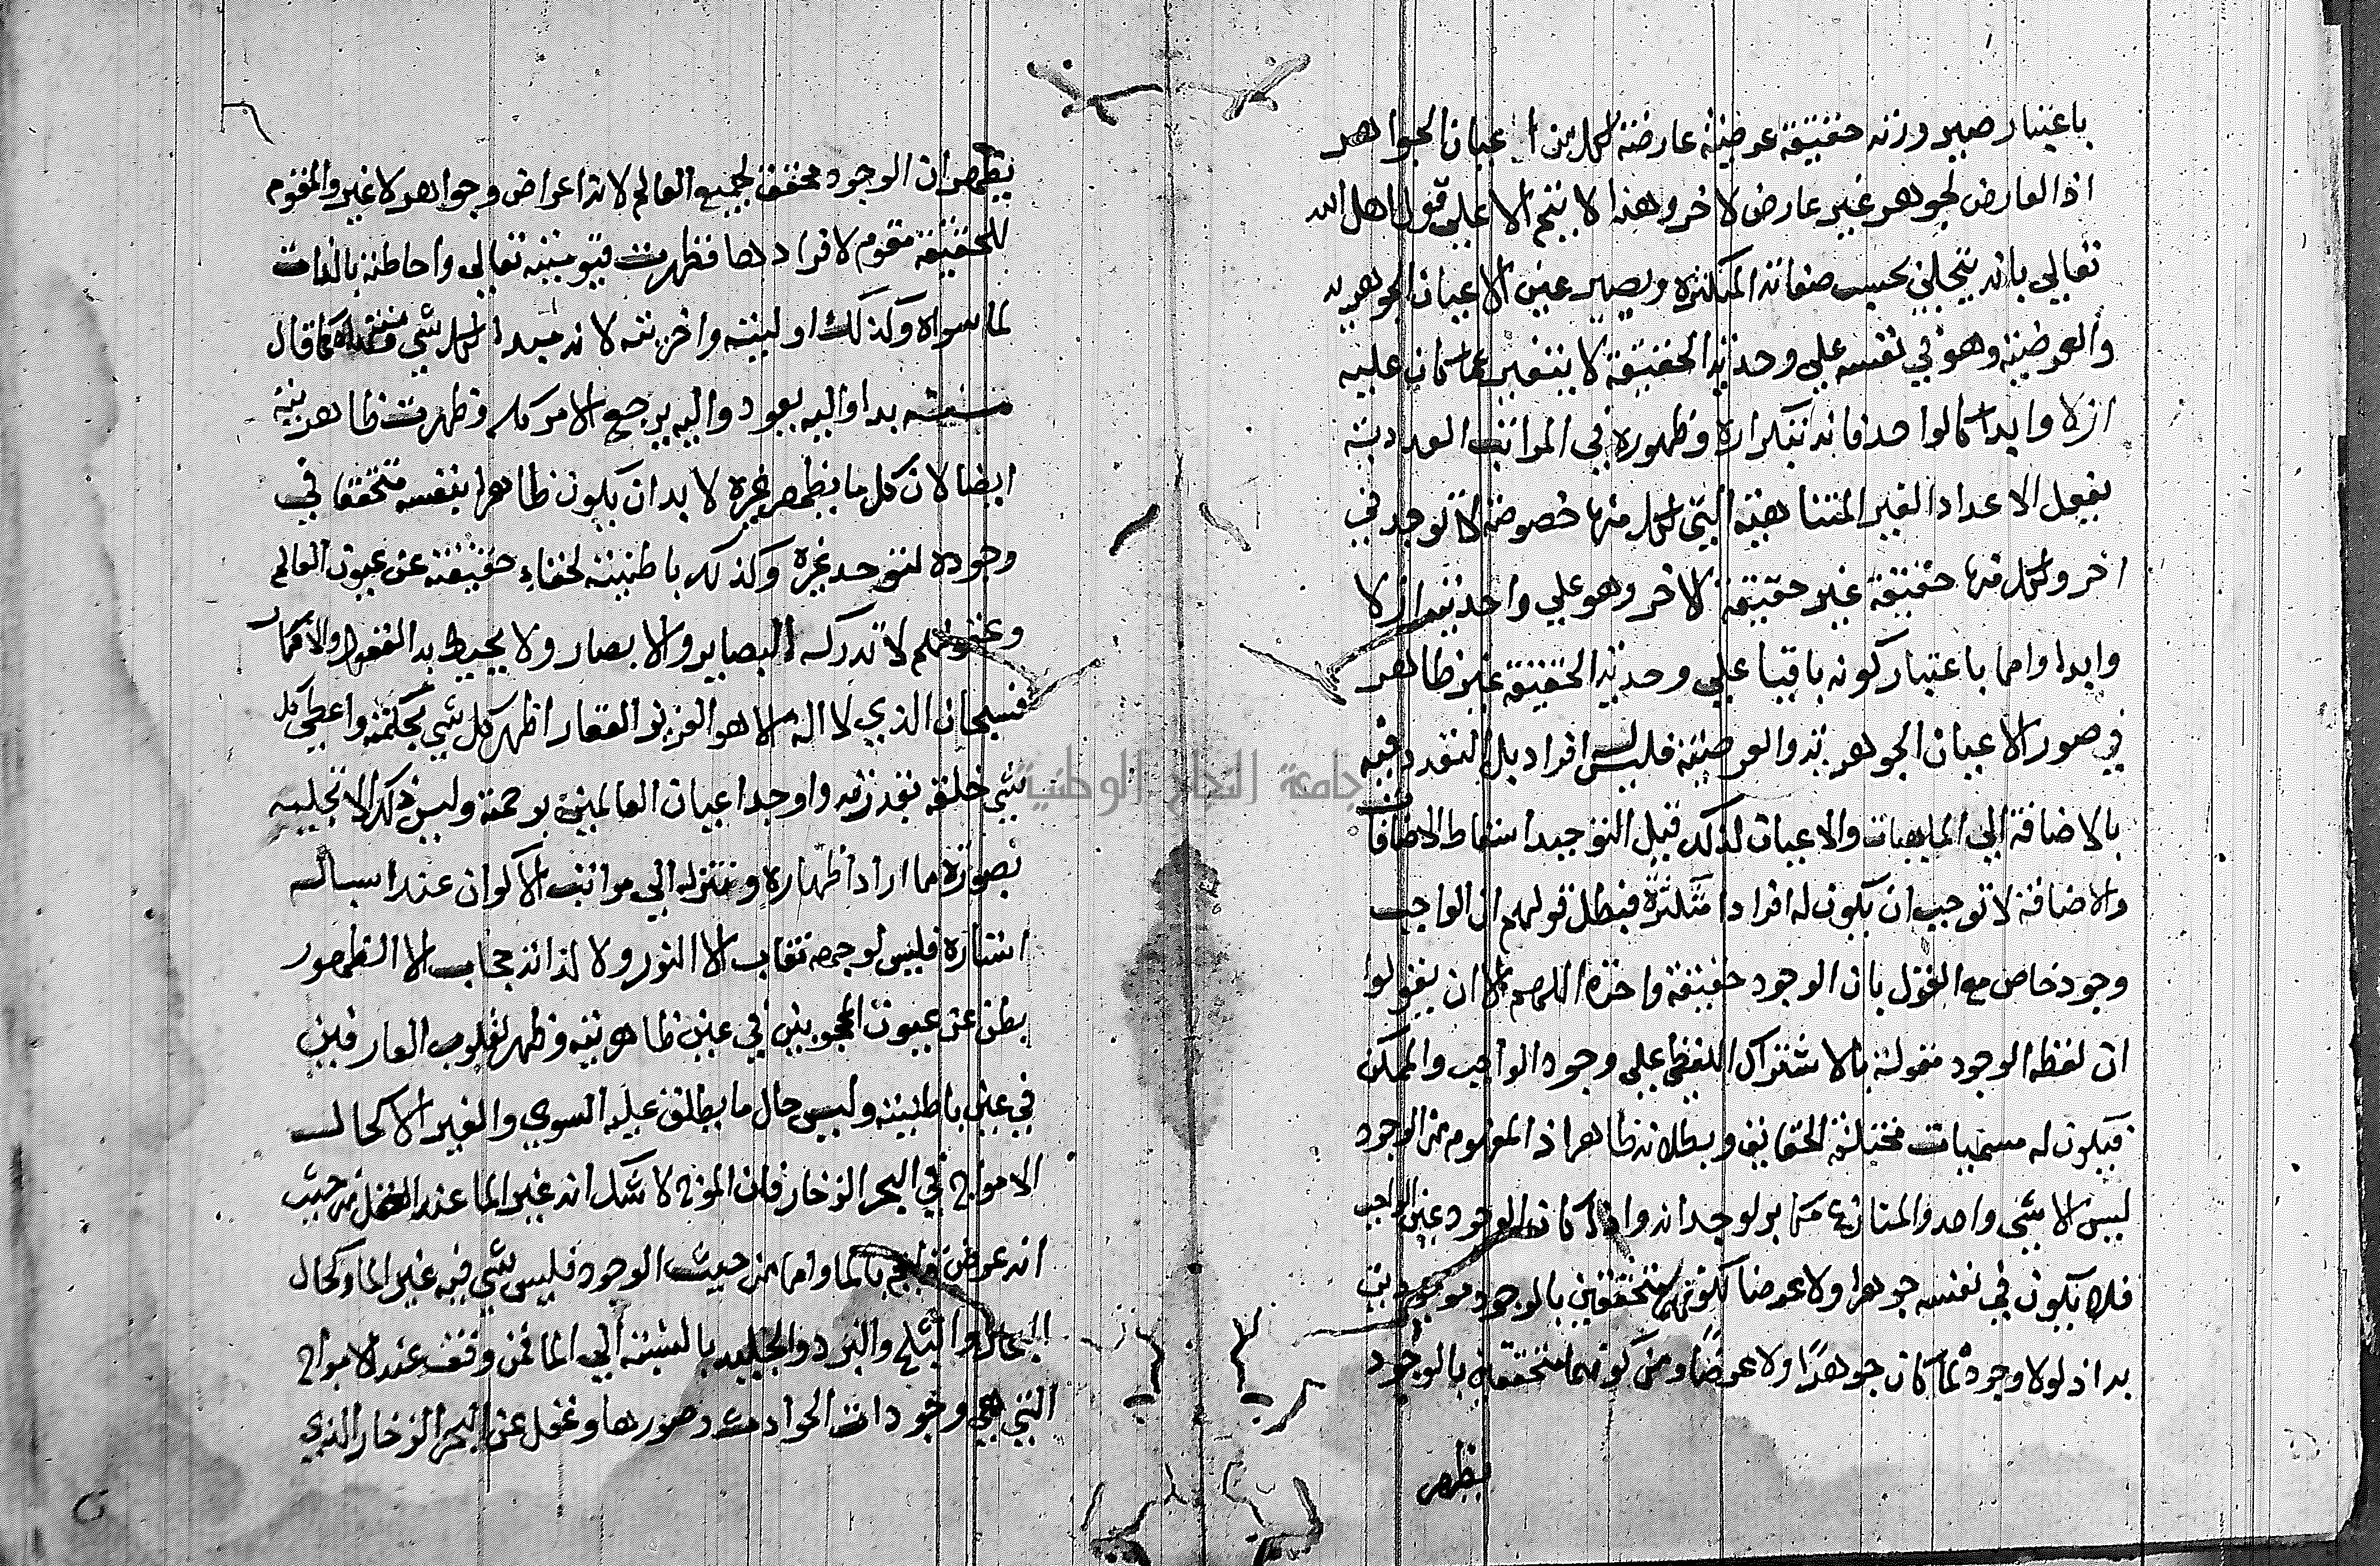 باعتبار صيرورته حقيقة عرضية عارضة لكل من اعيان الجواهر
اذ العارض لجوهر غير عارض لاخر وهذا لا يتم الا علي قول اهل الله
تعالي بانه يتجلي بحسب صفاته المتكثرة ويصير عين الاعيان الجوهريه
والعرضية وهو في نفسه علي وحدته الحقيقية لا يتغير عما كان عليه
ازلا وابدا كالواحد فانه بتكراره وظهوره في المراتب العددية
يفعل الاعداد الغير المتناهية التي لكل منها خصوصة لا توجد في
اخر ولكل منها حقيقة غير حقيقة الاخر وهو علي واحديته ازلا
وابدا واما باعتبار كونه باقيا علي وحدته الحقيقية غير ظاهر
في صور الاعيان الجوهرية والعرضية فليس له افراد بل التعدد فيه
بالاضافة الي الماهيات والاعيان لذلك قيل التوحيد اسقاط الاضافات
والاضافة لا توجب ان يكون له افرادا متكثرة فبطل قولهم ان الواجب
وجود خاص مع القول بان الوجود حقيقة واحدة اللهم الا ان يقولوا
ان لفظه الوجود مقولة بالاشتراك اللفظي علي وجود الواجب والممكن
فيكون له مسميات مختلفة الحقايق وبطلانه ظاهر اذ المفهوم من الوجود
ليس الا شي واحد والمنازع مكابر لوجدانه واذا كان الوجود عين الواجب
فلا يكون في نفسه جوهرا ولا عرضا لكونهما متحققين بالوجود موجودين
به اذ لولا وجود لما كان جوهرًا ولا عرضًا ومن كونهما متحققان بالوجود
يظهر
يظهر ان الوجود محقق لجميع العالم لانه اعراض وجواهر لا غير والمقوم
للحقيقة مقوم لافرادها فظهرت قيوميته تعالي واحاطته بالذات
لما سواه وكذلك اوليته واخريته لانه مبدا لكل شي ومنتهاه كما قال
منه بدا واليه يعود واليه يرجع الامر كله وظهرت ظاهريته
ايضا لان كل ما يظهر غيره لا بد ان يكون ظاهرا بنفسه متحققا في
وجوده لتوحد غيره وكذلك باطنيته لخفاء حقيقته عن عيون العالم
وعقولهم لا تدركه البصاير والابصار ولا يحيط به العقول والافكار
فسبحان الذي لا اله الا هو العزيز الغفار اظهر كل شي بحكمته واعطي كل
شي خلقه بقدرته واوجد اعيان العالمين برحمته وليس ذلك الا تجليه
بصورة ما اراد اظهاره وتنزله الي مراتب الاكوان عند اسباله
استاره فليس لوجهه نقاب الا النور ولا لذاته حجاب الا الظهور
بطن عن عيون المحجوبين في عين ظاهريته وظهر لقلوب العارفين
في عين باطنيته وليس حال ما يطلق عليه السوي والغير الا كحال
الامواج في البحر الزخار فان الموج لا شك انه غير الما عند العقل من حيث
انه عرض قايم بالما واما من حيث الوجود فليس شي فيه غير الما وكحال
البخار والثلج والبرد والجليد بالنسبة الي الما فمن وقف عند الامواج
التي هي وجودات الحوادث وصورها وغفل عن البحر الزخار الذي
جامعة النجاح الوطنية